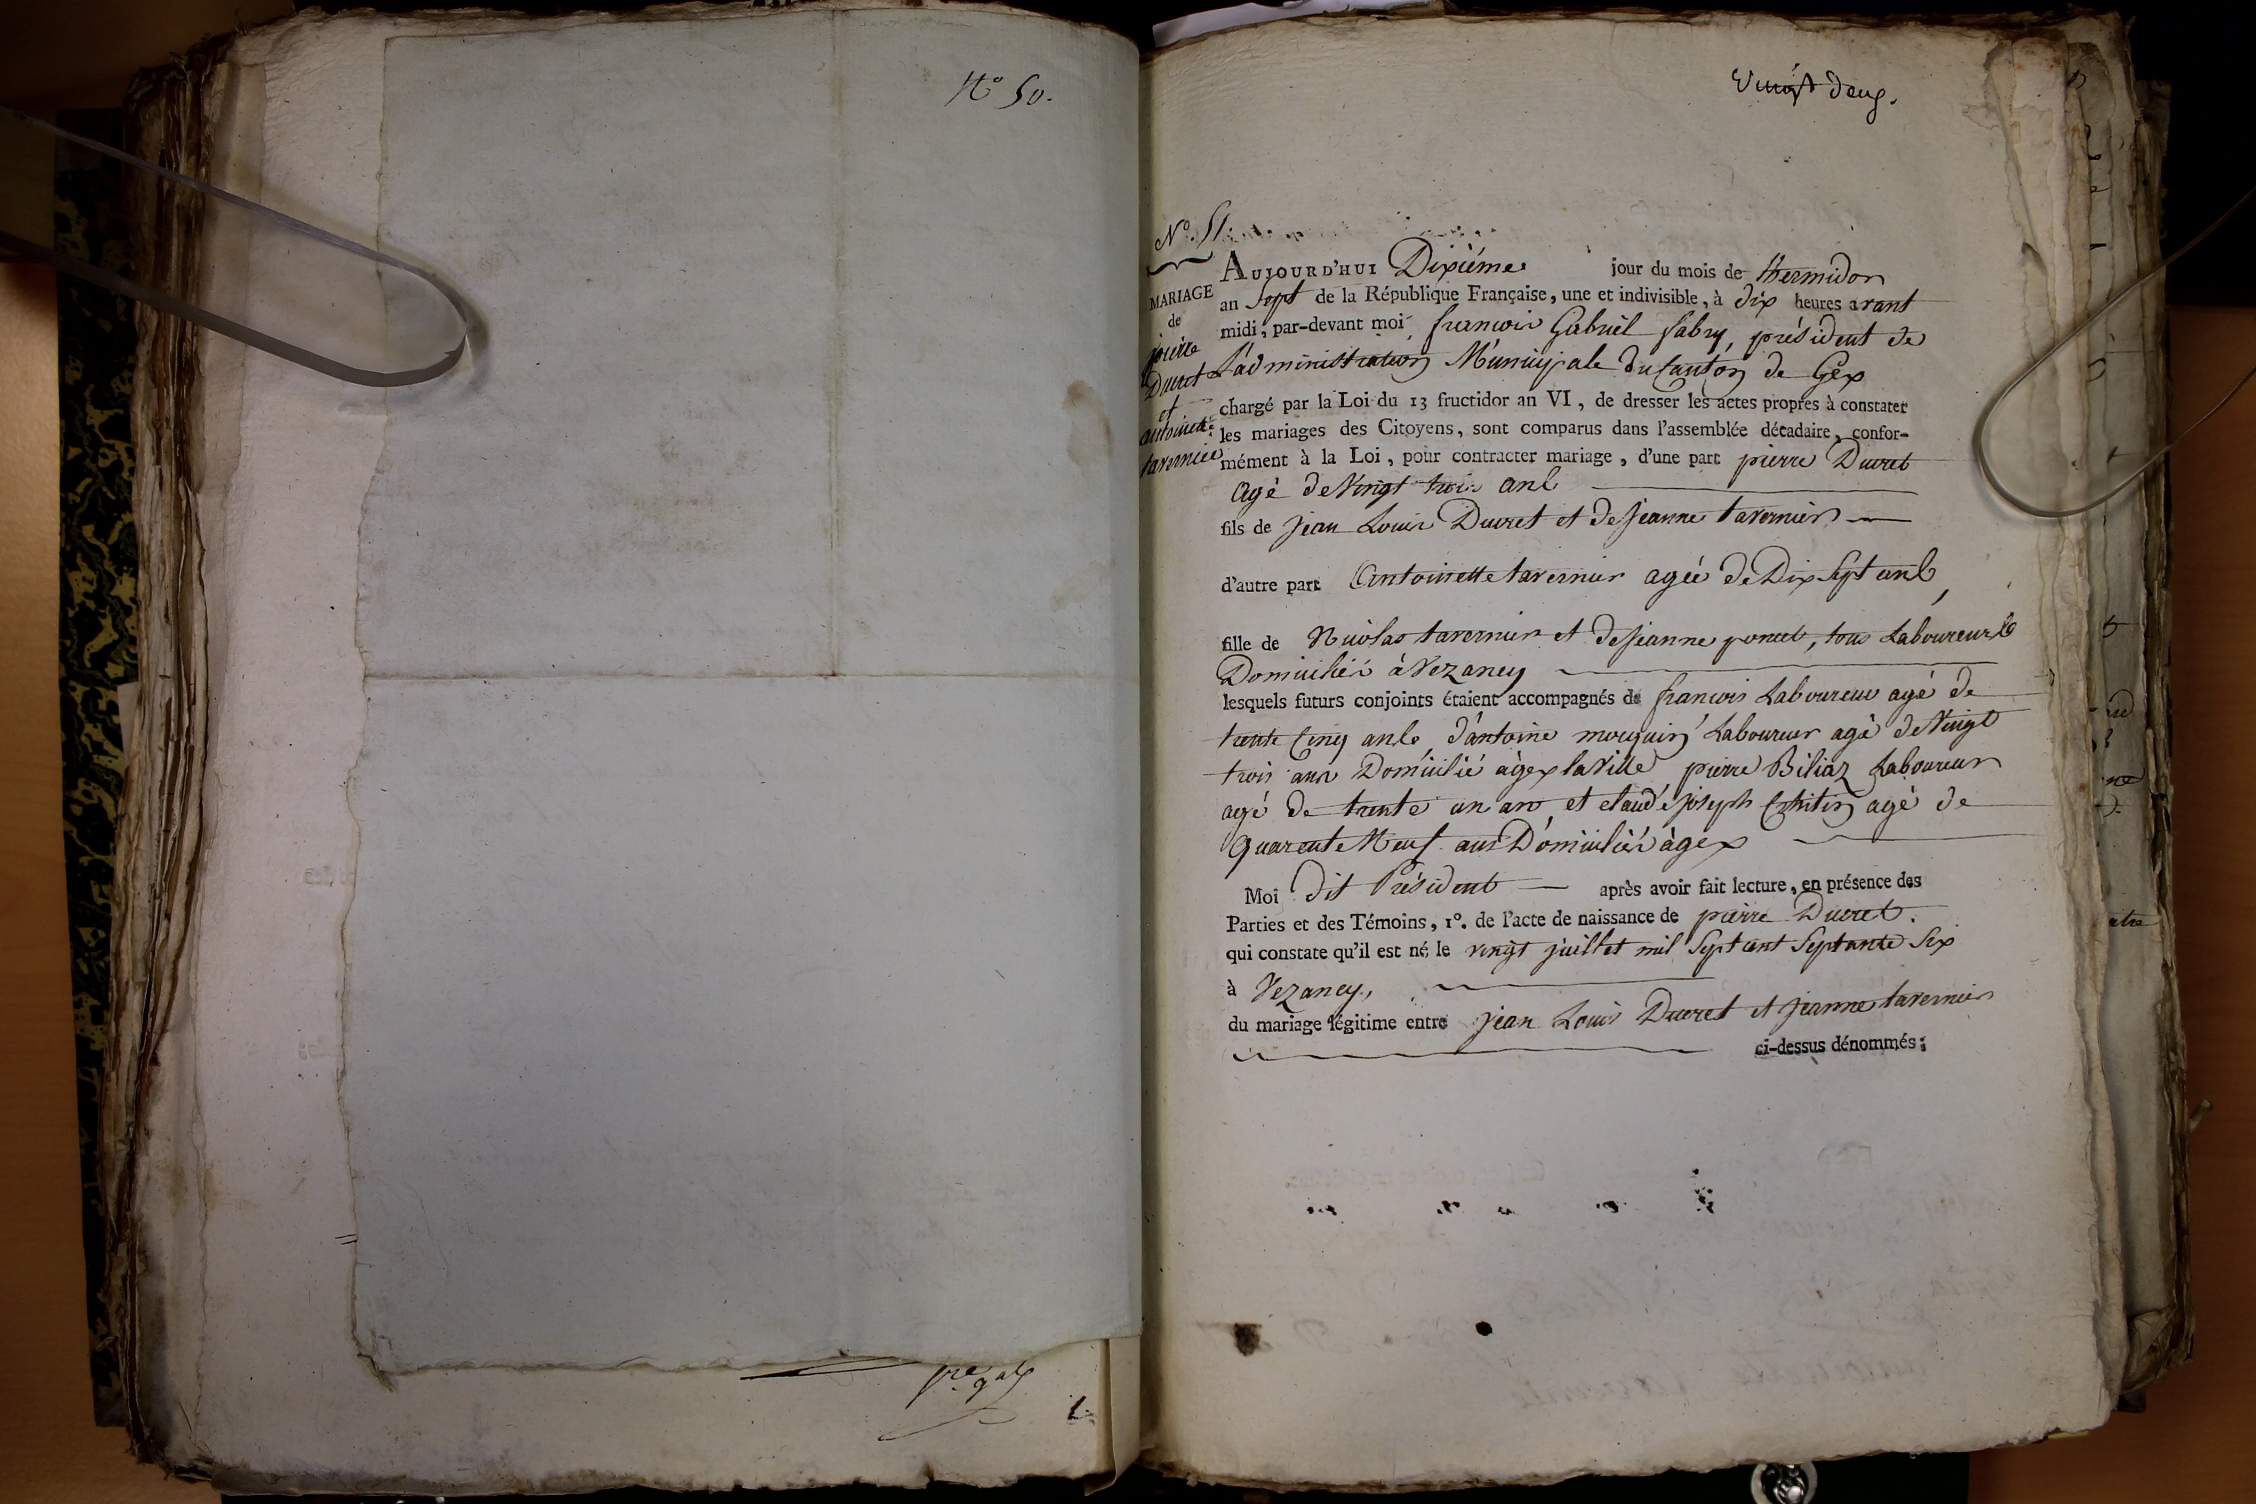 N° 50.
Vingt deux.
N° 51.
MARIAGE
de
pierre
Ducret
et
antoinette
tavernier
AUJOURD'HUI Dixiéme jour du mois de thermidor
an Sept de la République Française, une et indivisible, à dix heures avant
midi, par-devant moi francois Gabriel fabry, président de
L'administration Municipale du Canton de Gex
chargé par la Loi du 13 fructidor an VI, de dresser les actes propres à constater
les mariages des Citoyens, sont comparus dans l'assemblée décadaire, confor-
mément à la Loi, pour contracter mariage, d'une part pierre Ducret
agé de Vingt trois ans
fils de jean Louis Ducret et de jeanne tavernier
d'autre part antoinette tavernier agée de Dix Sept ans,
fille de Nicolas tavernier et de jeanne poncet, tous Laboureurs
Domiciliés à Vezancy
lesquels futurs conjoints étaient accompagnés de francois Laboureur agé de
trente Cinq ans, d'antoine mouquin Laboureur agé de Vingt
trois ans Domicilié à gex la Ville pierre Biliaz Laboureur
agé de trente un ans et claude joseph agé de
quarente Neuf ans Domiciliés à gex
Moi dit Président après avoir fait lecture, en présence des
Parties et des Témoins, 1°. de l'acte de naissance de pierre Ducret.
qui constate qu'il est né le vingt juillet mil Sept cent Septante Six
à Vezancy,
du mariage légitime entre jean Louis Ducret et jeanne tavernier
ci-dessus dénommés;